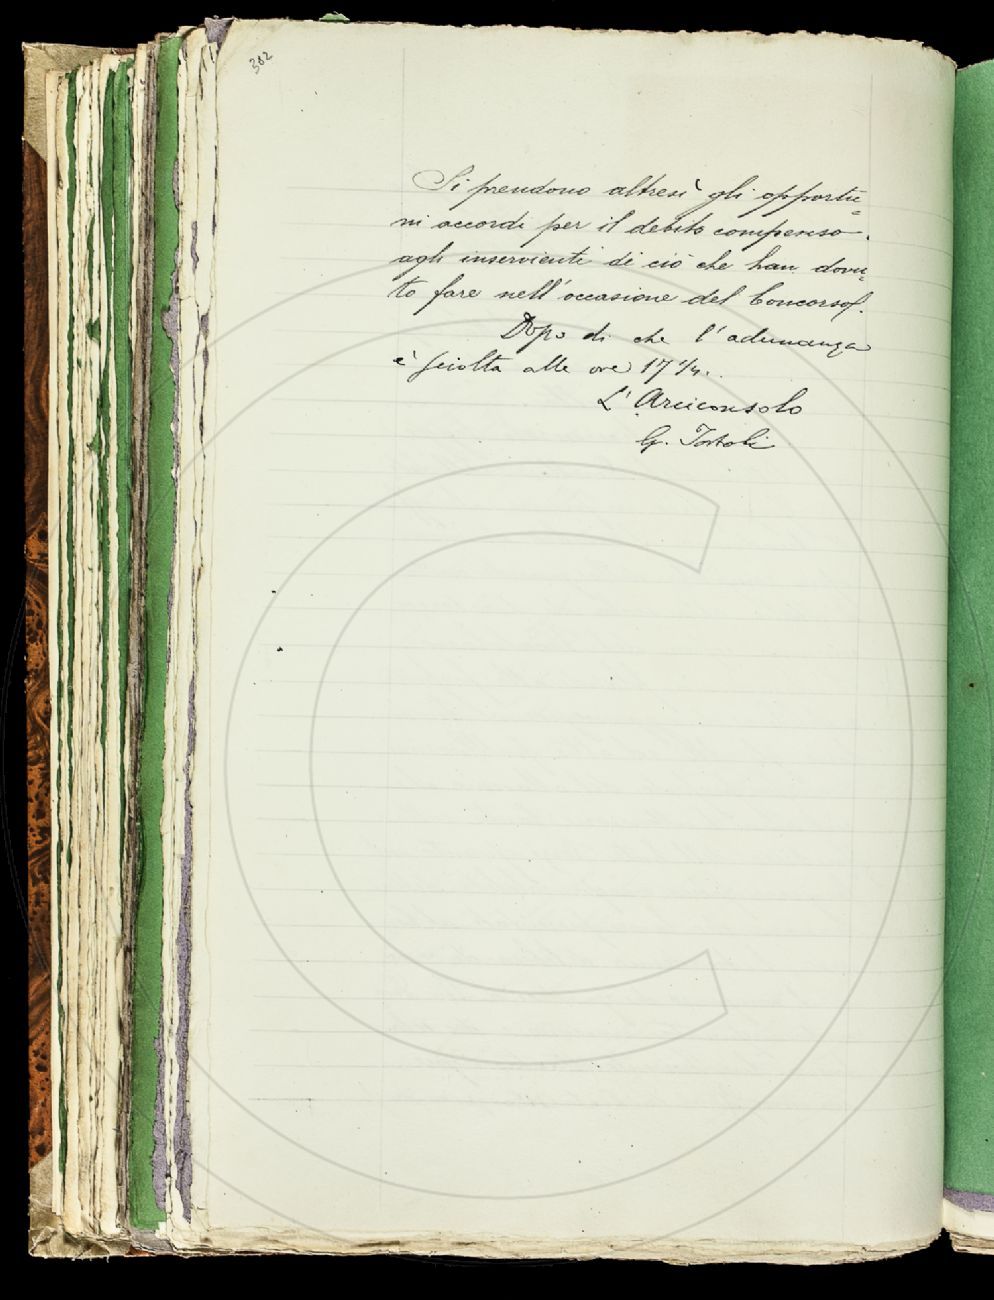 302
Si prendono altresì gli opportu=
ni accordi per il debito compenso
agli inservienti di ciò che han dovu=
to fare nell'occasione del Concorso.
Dopo di che l'adunanza
è sciolta alle ore 17 1/4.
L'Arciconsolo
G. Tortoli